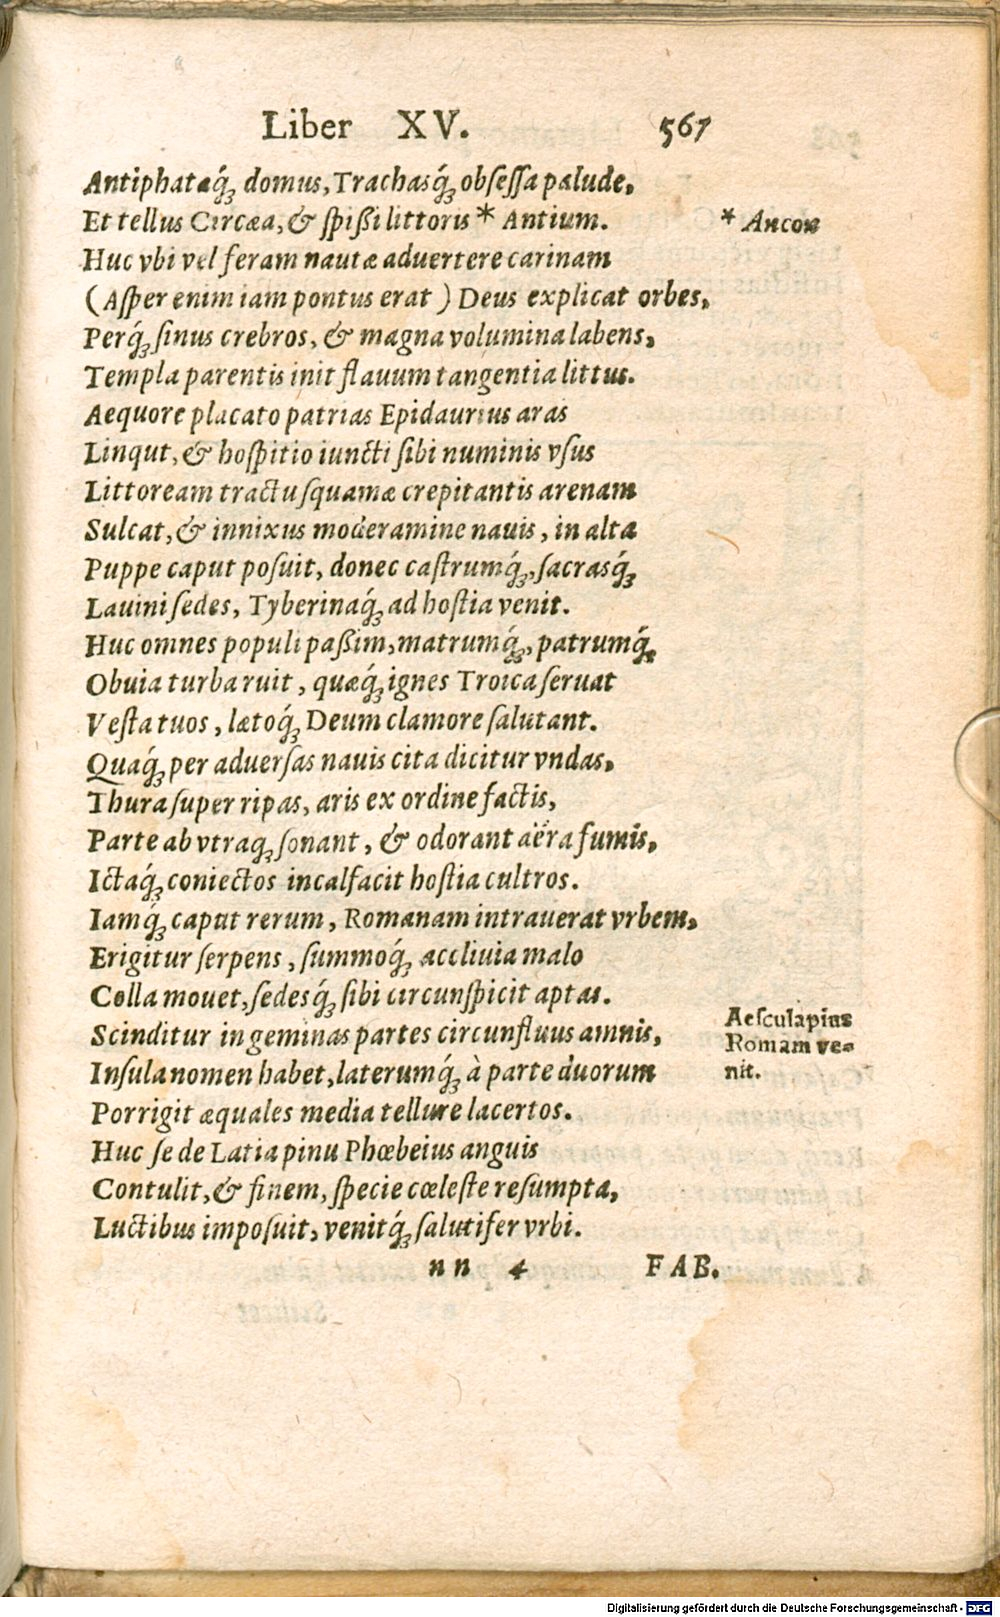 Liber XV. 567
Antiphataq́ꝫ domus, Trachasq́ꝫ obſeſſa palude,
Et tellus Circæa, & ſpißi littoris * Antium.
* Ancon
Huc vbi vel feram nautæ aduertere carinam
(Aſper enim iam pontus erat) Deus explicat orbes,
Perq́ꝫ ſinus crebros, & magna volumina labens,
Templa parentis init flauum tangentia littus.
Aequore placato patrias Epidaurius aras
Linqut, & hoſpitio iuncti ſibi numinis vſus
Littoream tractu ſquamæ crepitantis arenam
Sulcat, & innixus moderamine nauis, in alta
Puppe caput poſuit, donec caſtrumq́ꝫ, ſacrasq́ꝫ
Lauini ſedes, Tyberinaq́ꝫ ad hoſtia venit.
Huc omnes populi paßim, matrumq́ꝫ, patrumq́ꝫ
Obuia turba ruit, quæq́ꝫ ignes Troica ſeruat
Veſta tuos, lætoq́ꝫ Deum clamore ſalutant.
Quaq́ꝫ per aduerſas nauis cita dicitur vndas,
Thura ſuper ripas, aris ex ordine factis,
Parte ab vtraqꝫ ſonant, & odorant aëra fumis,
Ictaq́ꝫ coniectos incalfacit hoſtia cultros.
Iamq́ꝫ caput rerum, Romanam intrauerat vrbem,
Erigitur ſerpens, ſummoq́ꝫ accliuia malo
Colla mouet, ſedesq́ꝫ ſibi circunſpicit aptas.
Scinditur in geminas partes circunfluus amnis,
Aeſculapius
Romam ve-
nit.
Inſula nomen habet, laterumq́ꝫ à parte duorum
Porrigit æquales media tellure lacertos.
Huc ſe de Latia pinu Phœbeius anguis
Contulit, & finem, ſpecie cœleſte reſumpta,
Luctibus impoſuit, venitq́ꝫ ſalutifer vrbi.
nn 4 FAB.
Digitalisierung gefördert durch die Deutsche Forschungsgemeinschaft - DFG